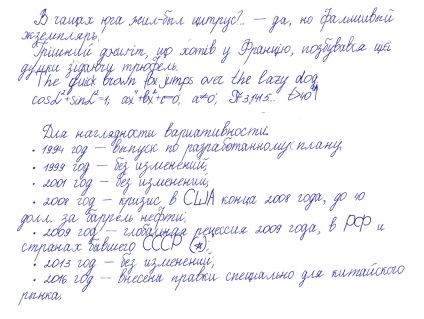 В чащах юга жил-был цитрус?.. — да, но фальшивый
экземпляръ.
Грішний джиґіт, що хотів у Францію, позбувався цієї
думки з'їдаючи трюфель.
The quick brown fox jumps over the lazy dog
cosα²+sinα²=1; ax²+bx²+c=0, a≠0; 3,1415... t>40°
Для наглядности вариативности.
• 1994 год — выпуск по разработанному плану,
• 1999 год — без изменений;
• 2001 год — без изменений,
• 2008 год — кризис в США конца 2008 года, до 40
долл. за баррель нефти;
• 2009 год — глобальная рецессия 2009 года, в РФ и
странах бывшего СССР (★);
• 2013 год — без изменений,
• 2016 год — внесены правки специально для китайского
рынка,